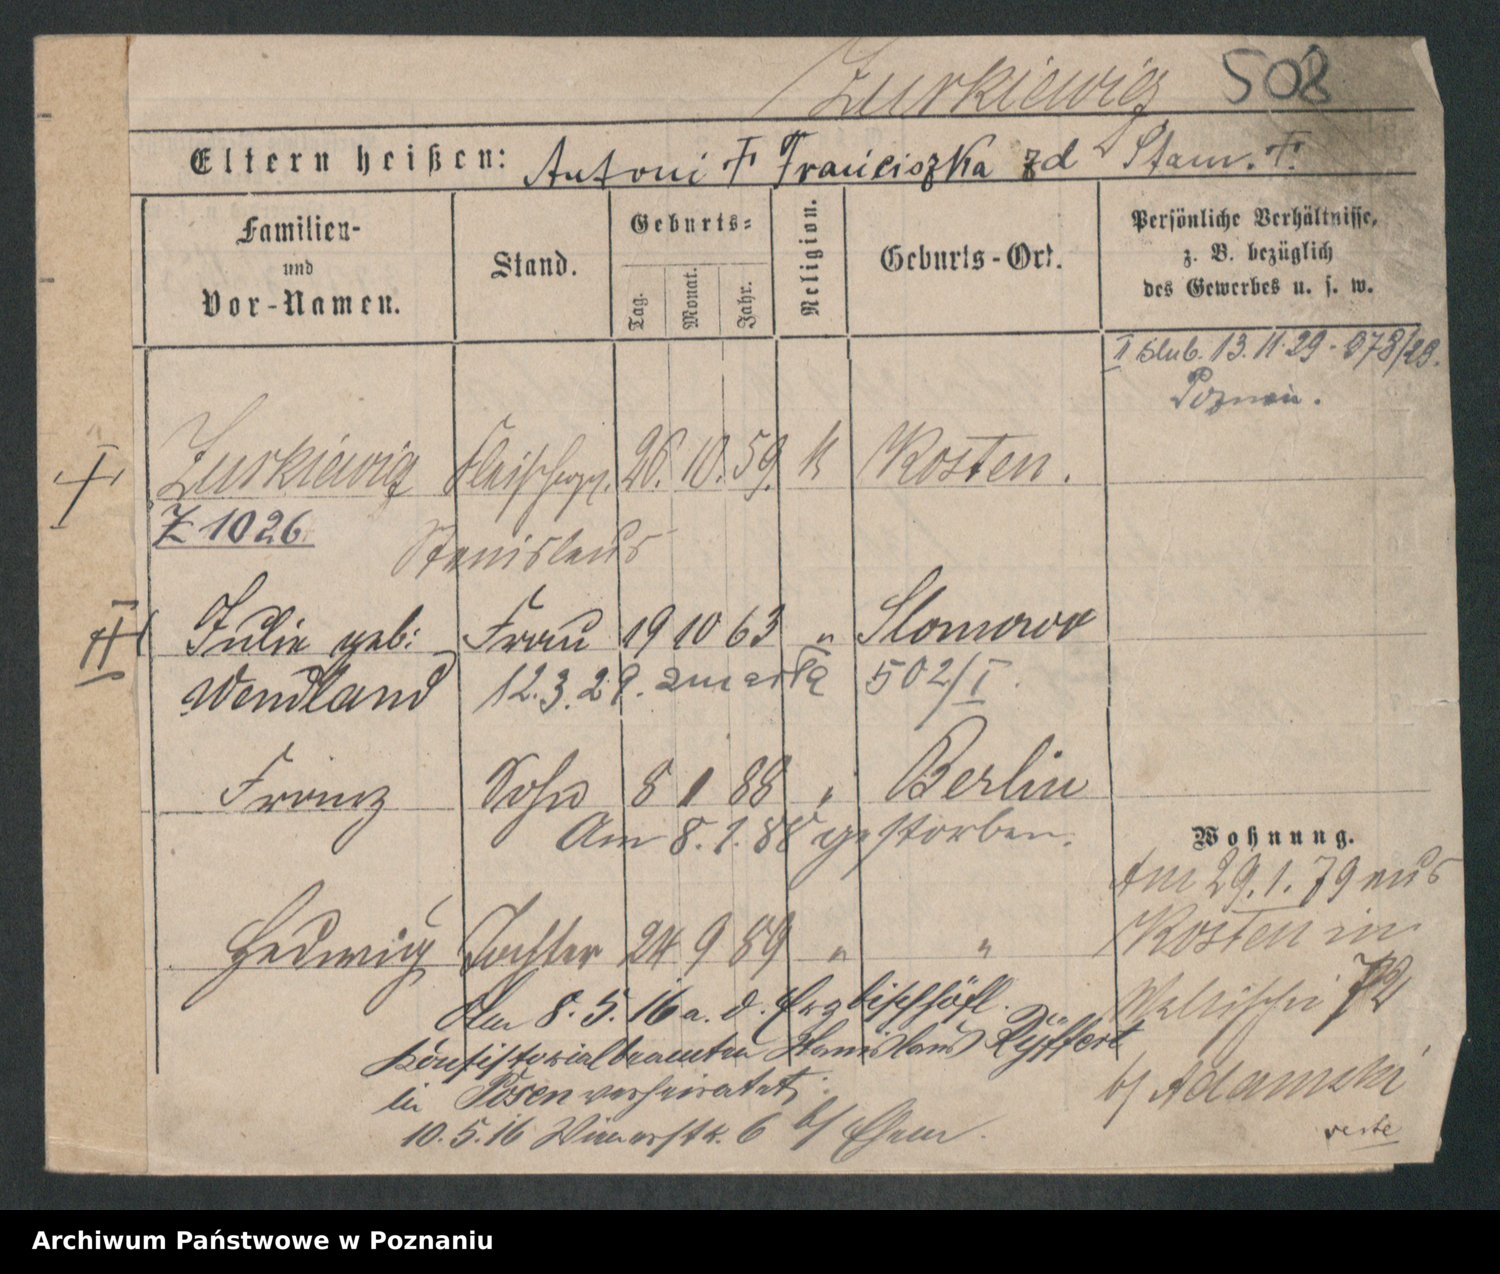 Zurkiewicz 508
Eltern heißen: Antoni F Franciszka zd Stanr. F.
Familien- und Vor-Namen.
Stand.
Geburts-
Tag. Monat. Jahr.
Religion.
Geburts-Ort.
Persönliche Verhältnisse,
z. B. bezüglich
des Gewerbes u. s. w.
I slub. 13.11.29 - 978/29.
Poznań.
I Zurkiewicz Fleischerges. 26. 10. 59. k Kosten.
Z 1026
Stanislaus
II Julie geb: Frau 19 10 63 " Slomowo
Wendland 12.3.29. zmarła 502/I.
Franz Sohn 8 1 88 " Berlin
Am 8. 1. 88 gestorben.
Hedwig Tochter 24 9 89 " "
Am 8. 5. 16 a. d. Erzbischöfl.
Konsistorialbeamten Stanislaus Ryffert
in Posen verheiratet;
10. 5. 16 6 b/ Ehem.
Wohnung.
Am 29. 1. 79 aus
Kosten in
Wallischei 72
b/ Adamski
verte
Archiwum Państwowe w Poznaniu